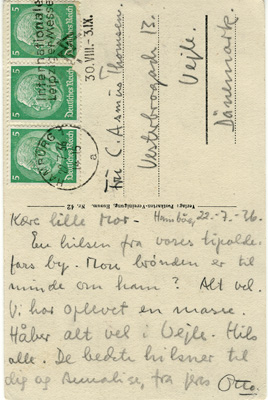 5
Deutsches Reich
5
Deutsches Reich
5
Deutsches Reich
Internationale
Leipziger Messe
30.VIII.-3.IX.
a
Frü C. Asmus Thomsen.
Vesterbrogade 13
Vejle.
Dänemark.
Kære lille Mor. Hamborg, 22-7-36.
En hilsen fra vores tipolde-
fars by. Mon brønden er til
minde om ham? Alt vel.
Vi har oplevet en masse.
Håber alt vel i Vejle. Hils
alle. De bedste hilsner til
dig og Annalise, fra jers Otto.